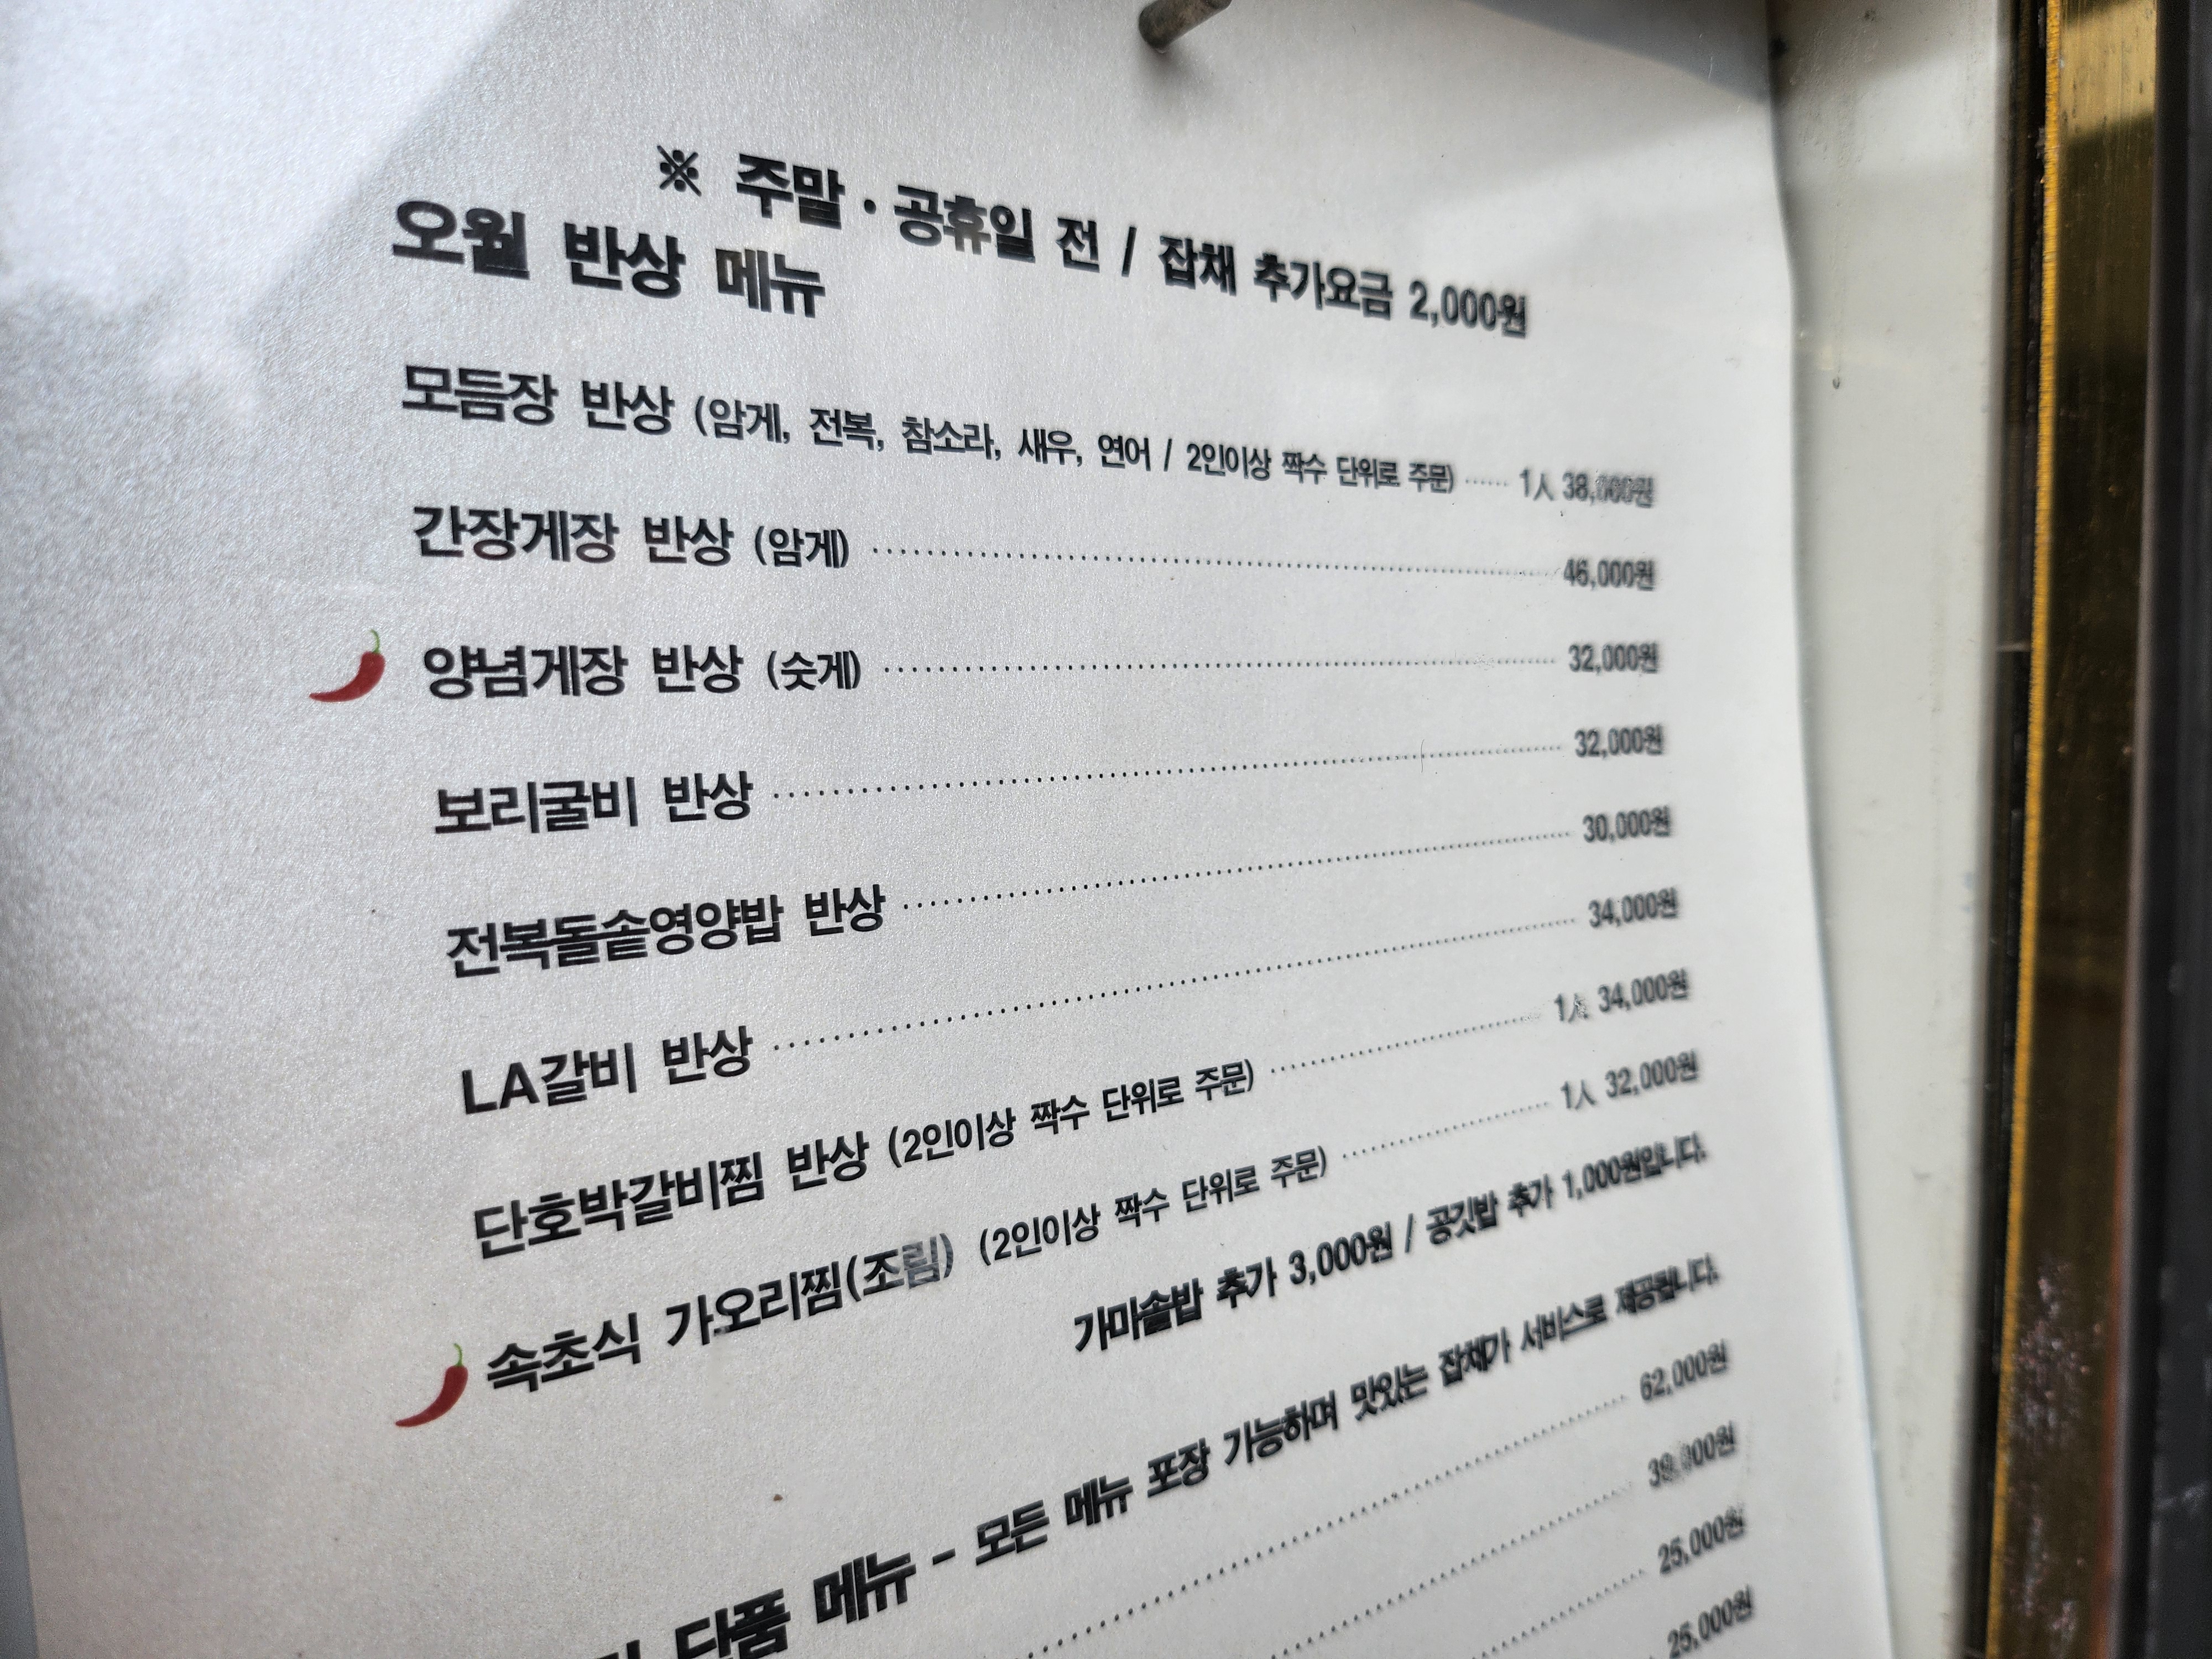 ※ 주말 · 공휴일 전 / 잡채 추가요금 2,000원
오월 반상 메뉴
모듬장 반상 (암게, 전복, 참소라, 새우, 연어 / 2인이상 짝수 단위로 주문) ...... 1人 38,000원
간장게장 반상 (암게) ...... 46,000원
양념게장 반상 (숫게) ...... 32,000원
보리굴비 반상 ...... 32,000원
전복돌솥영양밥 반상 ...... 30,000원
LA갈비 반상 ...... 34,000원
단호박갈비찜 반상 (2인이상 짝수 단위로 주문) ...... 1人 34,000원
속초식 가오리찜(조림) (2인이상 짝수 단위로 주문) ...... 1人 32,000원
가마솥밥 추가 3,000원 / 공깃밥 추가 1,000원입니다.
단품 메뉴 - 모든 메뉴 포장 가능하며 맛있는 잡채가 서비스로 제공됩니다.
62,000원
39,000원
25,000원
25,000원